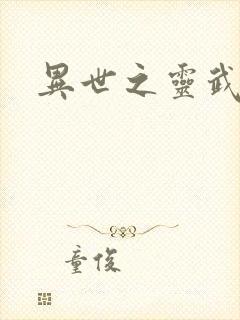 異世之靈武
童俊